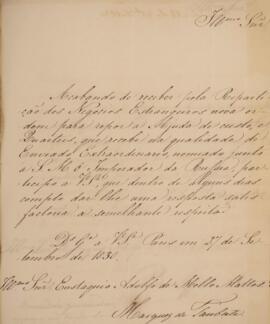 Illmo Snr
Acabando de receber pela Reparti-
ção dos Negocios Estrangeiros nova or-
dem para repor a Ajuda de custo, e
Quarteis, que recebi na qualidade de
Enviado Extraordinario, nomeado junto
a S. M. o Imperador da Russia, par-
ticipo a V.Sa. que dentro de alguns dias
conto dar lhe uma resposta satis-
factoria a semelhante respeito.
Ds. Ge. a V.Sa. Paris em 27 de Se-
tembro de 1830.
Illmo Snr Eustaquio Adolfo de Mello Mattos
Marquez de